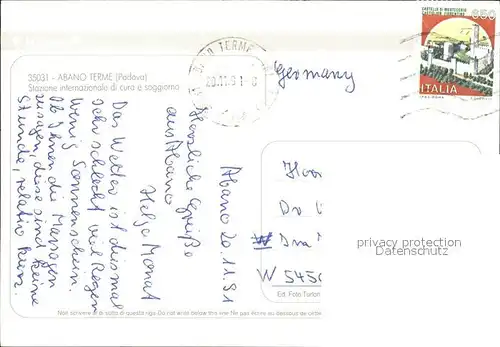 35031 - ABANO TERME (Padova)
Stazione internazionale di cura e soggiorno
ANO TERME
650
ITALIA
Germany
Abano 20.11.91
Herzliche Grüße
aus Abano
Das Wetter ist diesmal
sehr schlecht viel Regen
wenig Sonnenschein.
Ob Ihnen die Massagen
zusagen, diese sind keine
Stunde, relativ kurz.
Dr
W 545
privacy protection
Datenschutz
Ed. Foto
Non scrivere al di sotto di questa riga. Do not write below this line. Ne pas écrire au dessous de